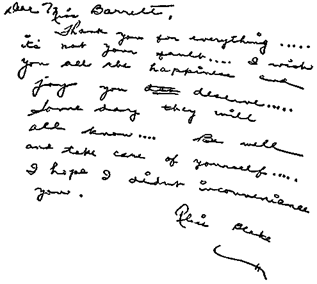 Dear Miss Barrett,
Thank you for everything .....
it's not your fault.... I wish
you all the happiness and
joy you deserve.....
Some day they will
all know.... Be well
and take care of yourself.....
I hope I didnt inconvenience
you.
Blake